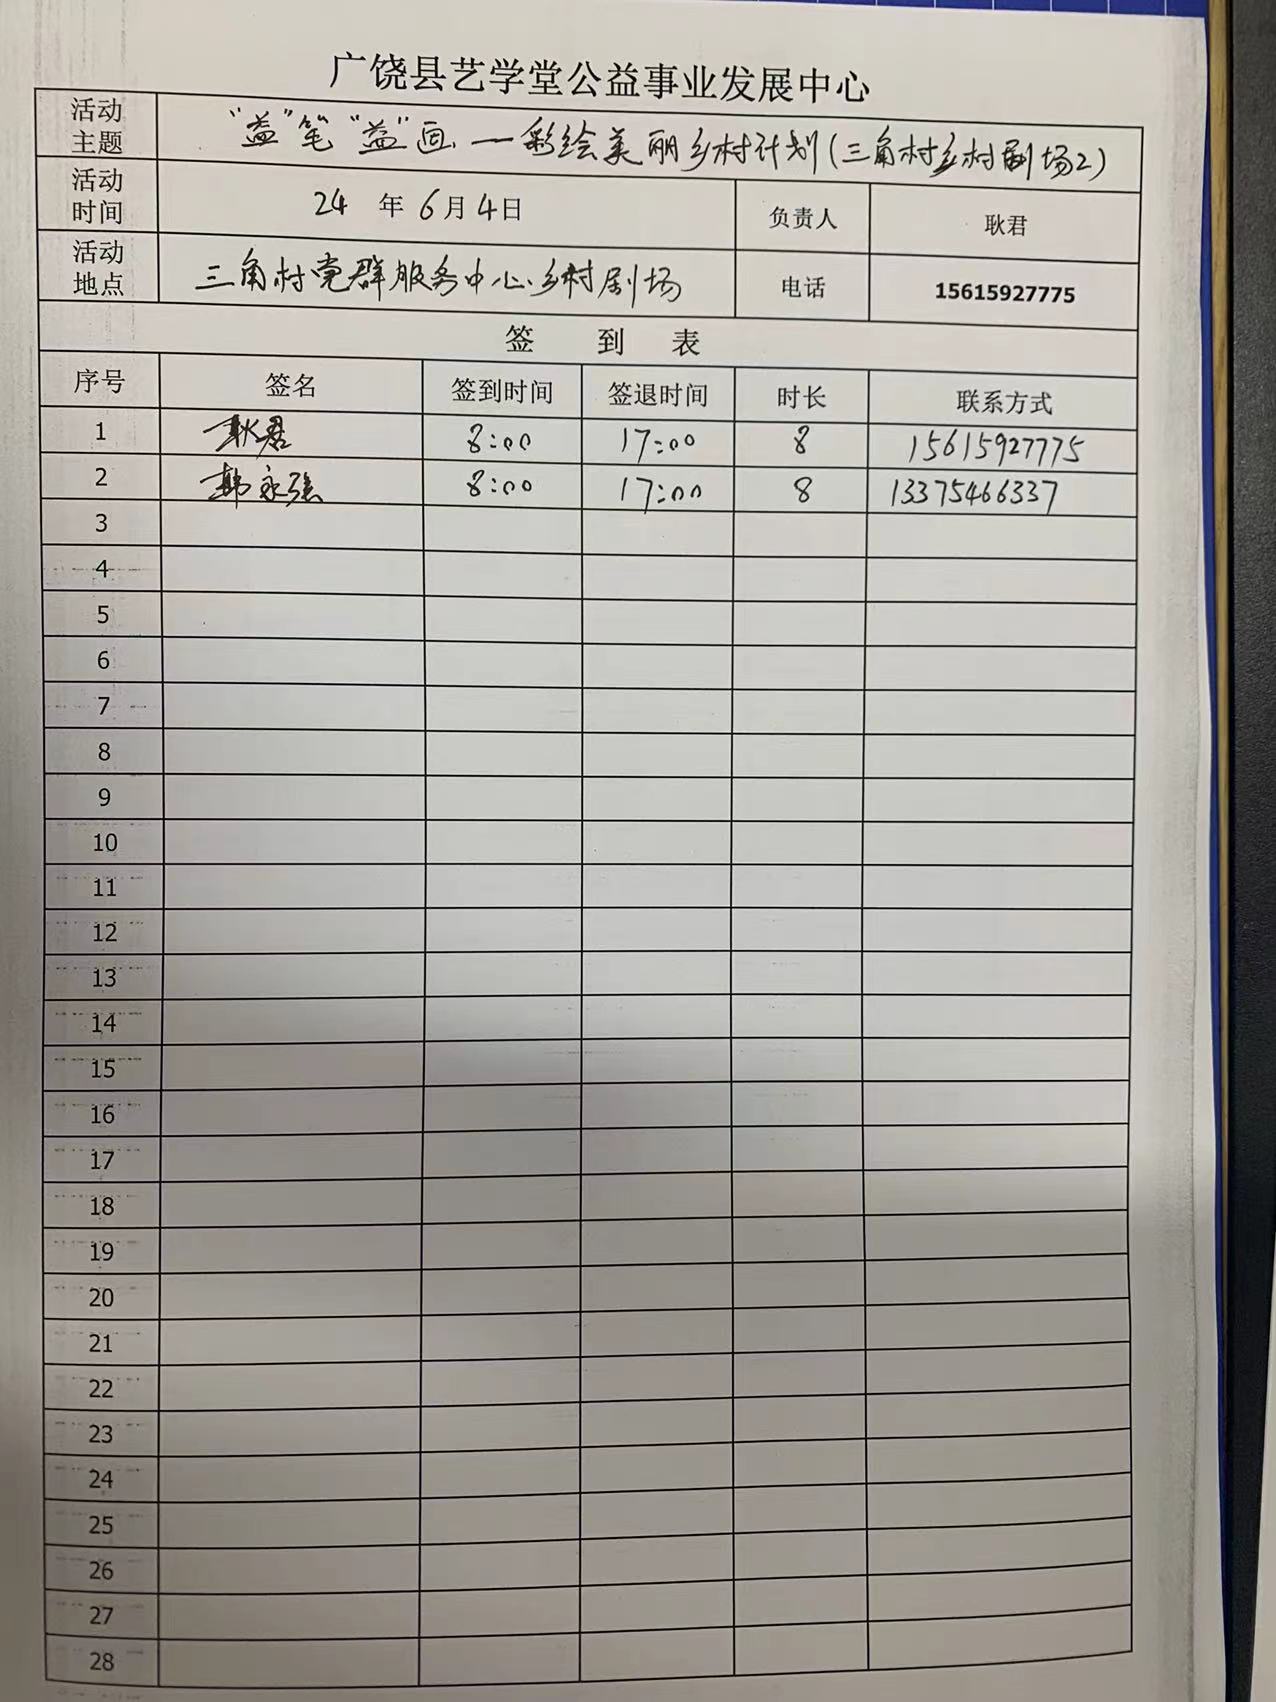 广饶县艺学堂公益事业发展中心
活动主题 “益”笔“益”画—彩绘美丽乡村计划(三角村乡村剧场2)
活动时间 24 年 6 月 4 日 负责人 耿君
活动地点 三角村党群服务中心乡村剧场 电话 15615927775
签 到 表
序号 签名 签到时间 签退时间 时长 联系方式
1 耿君 8:00 17:00 8 15615927775
2 韩永强 8:00 17:00 8 13375466337
3
4
5
6
7
8
9
10
11
12
13
14
15
16
17
18
19
20
21
22
23
24
25
26
27
28